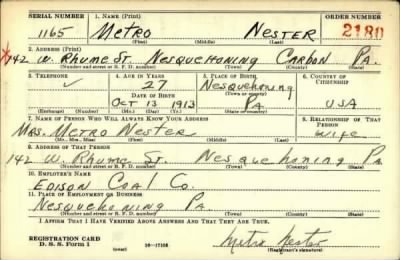 SERIAL NUMBER 1. NAME (Print) ORDER NUMBER
1165 Metro Nester 2180
(First) (Middle) (Last)
2. ADDRESS (Print)
142 W. Rhume St. Nesquehoning Carbon Pa.
(Number and street or R. F. D. number) (Town) (County) (State)
3. TELEPHONE 4. AGE IN YEARS 5. PLACE OF BIRTH 6. COUNTRY OF CITIZENSHIP
27 Nesquehoning
DATE OF BIRTH (Town or county)
Oct 13 1913 Pa. USA
(Mo.) (Day) (Yr.) (State or country)
7. NAME OF PERSON WHO WILL ALWAYS KNOW YOUR ADDRESS 8. RELATIONSHIP OF THAT PERSON
Mrs. Metro Nester Wife
(Mr., Mrs., Miss) (First) (Middle) (Last)
9. ADDRESS OF THAT PERSON
142 W. Rhume St. Nesquehoning Pa
(Number and street or R. F. D. number) (Town) (County) (State)
10. EMPLOYER'S NAME
Edison Coal Co.
11. PLACE OF EMPLOYMENT OR BUSINESS
Nesquehoning Pa
(Number and street or R. F. D. number) (Town) (County) (State)
I AFFIRM THAT I HAVE VERIFIED ABOVE ANSWERS AND THAT THEY ARE TRUE.
REGISTRATION CARD
D. S. S. Form 1 16-17105 Metro Nester
(Registrant's signature)